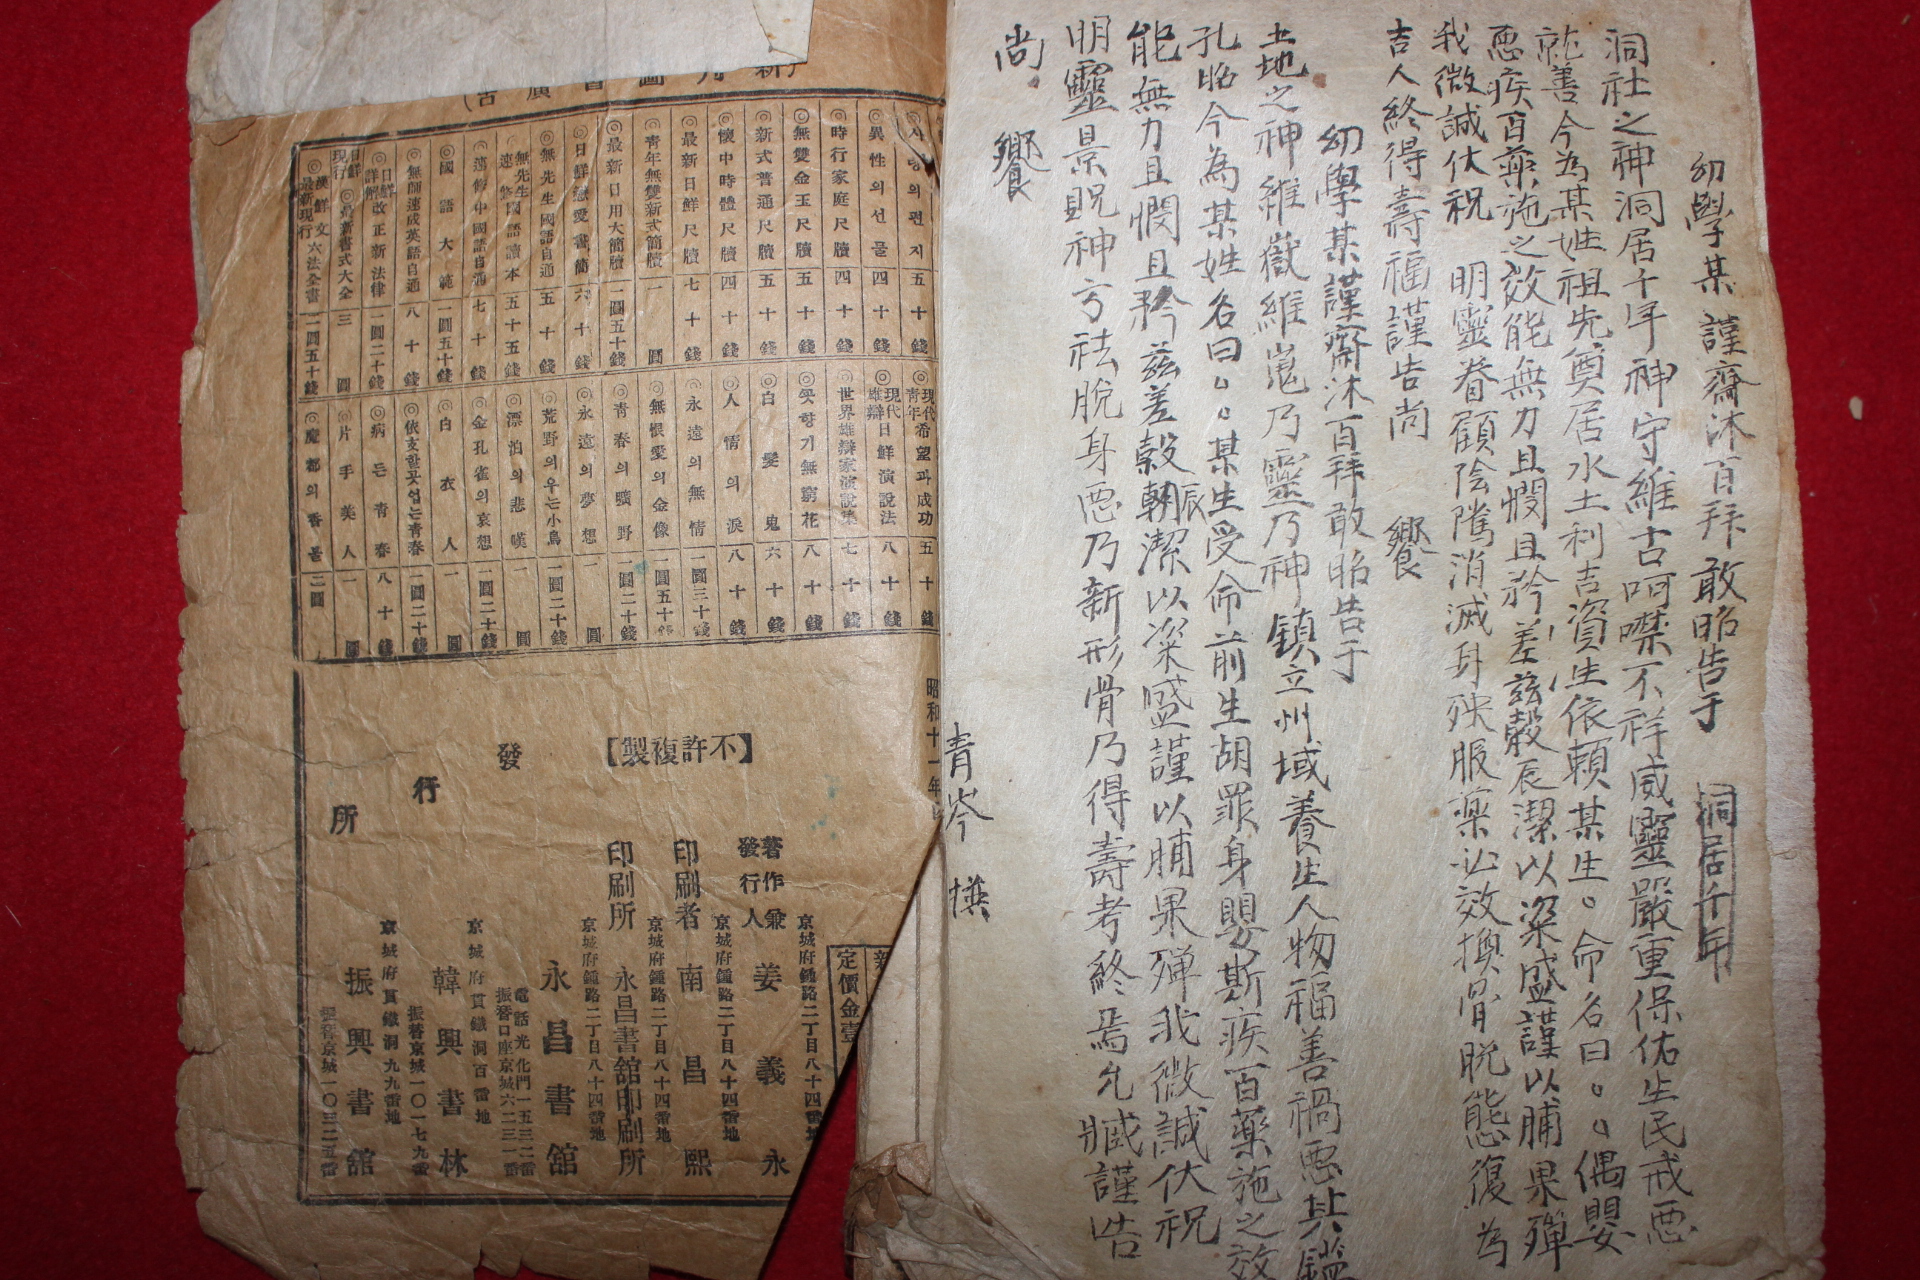 幼學某 謹齋沐百拜 敢昭告于 洞居千年
洞社之神洞居千年神守維古呵噤不祥威靈嚴重保佑生民戒惡
就善今為某姓祖先奠居水土利吉資生依賴某生○命名曰○○偶嬰
惡疾百藥施之效能無力且憫且矜差玆穀辰潔以粢盛謹以脯果殫
我微誠伏祝 明靈眷顧陰隲消滅身殃服藥必效換骨脫態復為
吉人終得壽福謹告尚 饗
幼學某謹齋沐百拜敢昭告于
土地之神維嶽維嵬乃靈乃神鎮立州域養生人物福善禍惡其鑑
孔昭今為某姓名曰○○某生受命前生胡罪身嬰斯疾百藥施之效
能無力且憫且矜玆差穀朝辰潔以粢盛謹以脯果殫我微誠伏祝
明靈景貺神方祛脫身惡乃新形骨乃得壽考終焉允臧謹告
尚 饗
青岑 撰
異性의선물 四十錢
時行家庭尺牘 四十錢
無雙金玉尺牘 五十錢
新式普通尺牘 五十錢
懷中時體尺牘 四十錢
最新日鮮尺牘 七十錢
靑年無雙新式簡牘 一圓
最新日用大簡牘 一圓五十錢
日鮮戀愛書簡 六十錢
無先生國語自通 五十錢
無先生速修國語讀本 五十五錢
速修中國語自通 七十錢
國語大範 一圓五十錢
無師速成英語自通 八十錢
日鮮詳解改正新法律 一圓二十錢
日鮮現行最新書式大全 三圓
漢鮮文最新現行六法全書 二圓五十錢
現代靑年希望과成功 五十錢
現代雄辯日鮮演說法 八十錢
世界雄辯家演說集 七十錢
꼿향기無窮花 八十錢
白髮鬼 六十錢
人情의淚 八十錢
永遠의無情 一圓三十錢
無恨愛의金像 一圓五十錢
靑春의曠野 一圓二十錢
永遠의夢想 一圓
荒野의우는小鳥 一圓二十錢
漂泊의悲嘆 一圓
金孔雀의哀想 一圓二十錢
白衣人 一圓
依支할곳업는靑春 一圓二十錢
病든靑春 八十錢
片手美人 一圓
魔都의香불 二圓
昭和十一年
【不許複製】
定價金壹
京城府鍾路二丁目八十四番地
著作兼發行人 姜義永
京城府鍾路二丁目八十四番地
印刷者 南昌熙
京城府鍾路二丁目八十四番地
印刷所 永昌書舘印刷所
京城府鍾路二丁目八十四番地
發行所
永昌書舘
電話光化門一五三二番
振替口座京城六二三一番
京城府貫鐵洞百番地
韓興書林
振替京城一〇一七九番
京城府貫鐵洞九九番地
振興書舘
振替京城一〇三二五番